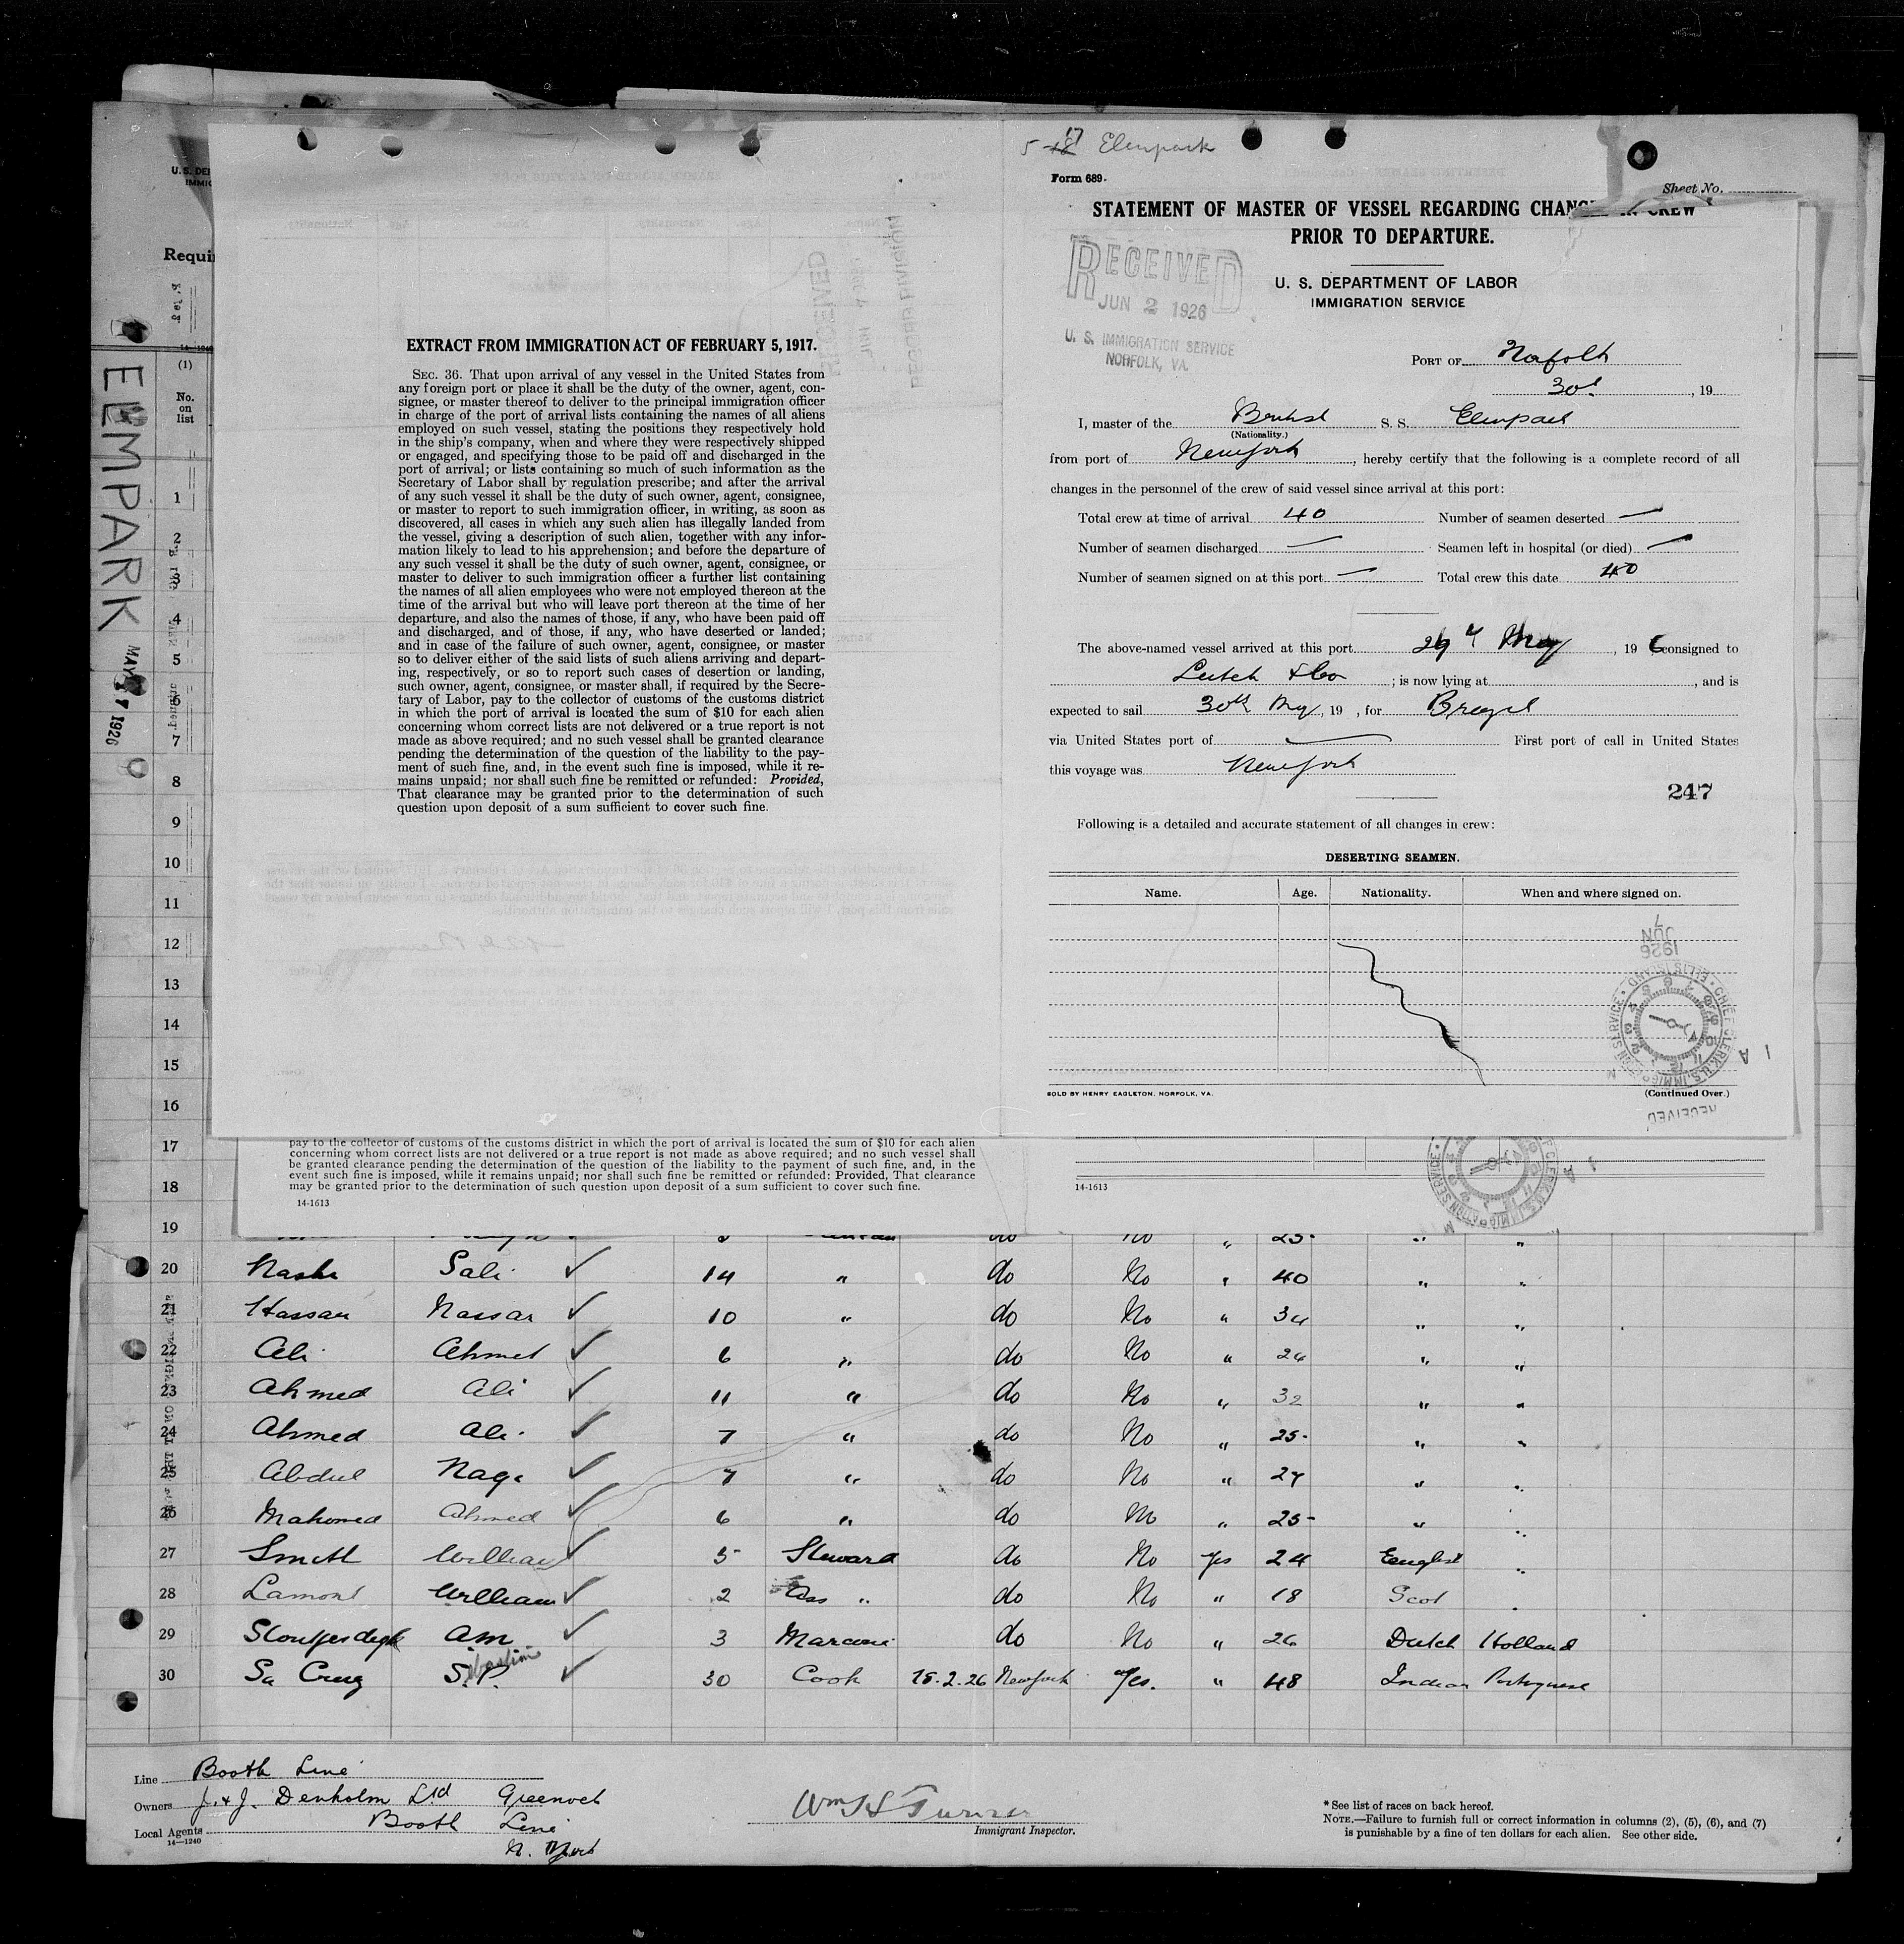 U. S. DE
IMMIG
Requi
14—1240
(1)
No.
on
list
ELEMPARK
MAY 1926
EXTRACT FROM IMMIGRATION ACT OF FEBRUARY 5, 1917.
SEC. 36. That upon arrival of any vessel in the United States from
any foreign port or place it shall be the duty of the owner, agent, con-
signee, or master thereof to deliver to the principal immigration officer
in charge of the port of arrival lists containing the names of all aliens
employed on such vessel, stating the positions they respectively hold
in the ship's company, when and where they were respectively shipped
or engaged, and specifying those to be paid off and discharged in the
port of arrival; or lists containing so much of such information as the
Secretary of Labor shall by regulation prescribe; and after the arrival
of any such vessel it shall be the duty of such owner, agent, consignee,
or master to report to such immigration officer, in writing, as soon as
discovered, all cases in which any such alien has illegally landed from
the vessel, giving a description of such alien, together with any infor-
mation likely to lead to his apprehension; and before the departure of
any such vessel it shall be the duty of such owner, agent, consignee, or
master to deliver to such immigration officer a further list containing
the names of all alien employees who were not employed thereon at the
time of the arrival but who will leave port thereon at the time of her
departure, and also the names of those, if any, who have been paid off
and discharged, and of those, if any, who have deserted or landed;
and in case of the failure of such owner, agent, consignee, or master
so to deliver either of the said lists of such aliens arriving and depart-
ing, respectively, or so to report such cases of desertion or landing,
such owner, agent, consignee, or master shall, if required by the Secre-
tary of Labor, pay to the collector of customs of the customs district
in which the port of arrival is located the sum of $10 for each alien
concerning whom correct lists are not delivered or a true report is not
made as above required; and no such vessel shall be granted clearance
pending the determination of the question of the liability to the pay-
ment of such fine, and, in the event such fine is imposed, while it re-
mains unpaid; nor shall such fine be remitted or refunded: Provided,
That clearance may be granted prior to the determination of such
question upon deposit of a sum sufficient to cover such fine.
5-18 17 Elmpark
Form 689.
Sheet No.
STATEMENT OF MASTER OF VESSEL REGARDING CHANGES IN CREW
PRIOR TO DEPARTURE.
U. S. DEPARTMENT OF LABOR
IMMIGRATION SERVICE
RECEIVED
JUN 2 1926
U. S. IMMIGRATION SERVICE
NORFOLK, VA.
PORT OF Norfolk
30th, 19
I, master of the British S. S. Elmpark
(Nationality.)
from port of New York, hereby certify that the following is a complete record of all
changes in the personnel of the crew of said vessel since arrival at this port:
Total crew at time of arrival 40 Number of seamen deserted —
Number of seamen discharged — Seamen left in hospital (or died) —
Number of seamen signed on at this port — Total crew this date 40
The above-named vessel arrived at this port 29th May, 1926 consigned to
Leitch & Co; is now lying at, and is
expected to sail 30th May, 19 , for Brazil
via United States port of — First port of call in United States
this voyage was New York
247
Following is a detailed and accurate statement of all changes in crew:
DESERTING SEAMEN.
Name. Age. Nationality. When and where signed on.
1926
JUN
7
CHIEF CLERK, U.S. IMMIGRATION SERVICE · ELLIS ISLAND
RECEIVED
SOLD BY HENRY EAGLETON, NORFOLK, VA.
(Continued Over.)
pay to the collector of customs of the customs district in which the port of arrival is located the sum of $10 for each alien
concerning whom correct lists are not delivered or a true report is not made as above required; and no such vessel shall
be granted clearance pending the determination of the question of the liability to the payment of such fine, and, in the
event such fine is imposed, while it remains unpaid; nor shall such fine be remitted or refunded: Provided, That clearance
may be granted prior to the determination of such question upon deposit of a sum sufficient to cover such fine.
14-1613
14-1613
1
2
3
4
5
6
7
8
9
10
11
12
13
14
15
16
17
18
19 do No " 25 " "
20 Nashr Sali ✓ 14 " do No " 40 " "
21 Hassan Nassar ✓ 10 " do No " 34 " "
22 Ali Ahmed ✓ 6 " do No " 24 " "
23 Ahmed Ali ✓ 11 " do No " 32 " "
24 Ahmed Ali ✓ 7 " do No " 25 " "
25 Abdul Nagi ✓ 7 " do No " 27 " "
26 Mahomed Ahmed ✓ 6 " do No " 25 " "
27 Smith William ✓ 5 Steward do No Yes 24 English "
28 Lamont William ✓ 2 Ass " do No " 18 Scot "
29 A M ✓ 3 Marconi do No " 26 Dutch Holland
30 Sa Cruz S.P. ✓ 30 Cook 18.2.26 New York Yes. " 48 Indian Portuguese
Line Booth Line
Owners J. & J. Denholm Ltd Greenock
Local Agents Booth Line
N. York
14—1240
Wm S Turner
Immigrant Inspector.
* See list of races on back hereof.
NOTE.—Failure to furnish full or correct information in columns (2), (5), (6), and (7)
is punishable by a fine of ten dollars for each alien. See other side.